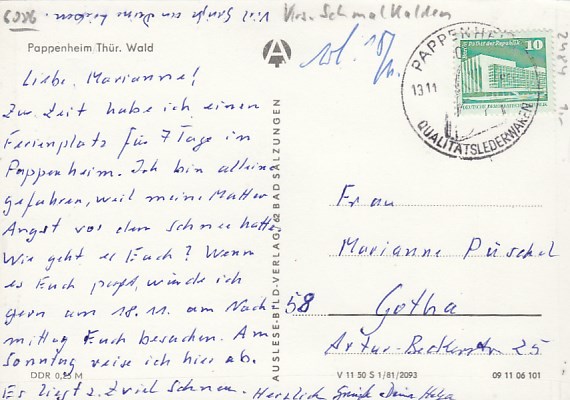 6086
Krs. Schmalkalden
Pappenheim Thür. Wald
Liebe Marianne!
Zur Zeit habe ich einen
Ferienplatz für 7 Tage in
Pappenheim. Ich bin alleine
gefahren, weil meine Mutter
Angst vor dem Schnee hatte.
Wie geht es Euch? Wenn
es Euch paßt, würde ich
gern am 18.11. am Nach
mittag Euch besuchen. Am
Sonntag reise ich hier ab.
Es liegt z. Zeit Schnee. Herzlich Grüßt Deine Helga
Viel Grüße an Deine lieben.
DDR 0,25 M
AUSLESE-BILD-VERLAG, 62 BAD SALZUNGEN
PAPPENHEIM
13.11
QUALITÄTSLEDERWAREN
Palast der Republik
10
DEUTSCHE DEMOKRATISCHE REPUBLIK
Frau
Marianne Püschel
58 Gotha
Artur-Beckerstr 25
V 11 50 S 1/81/2093
09 11 06 101